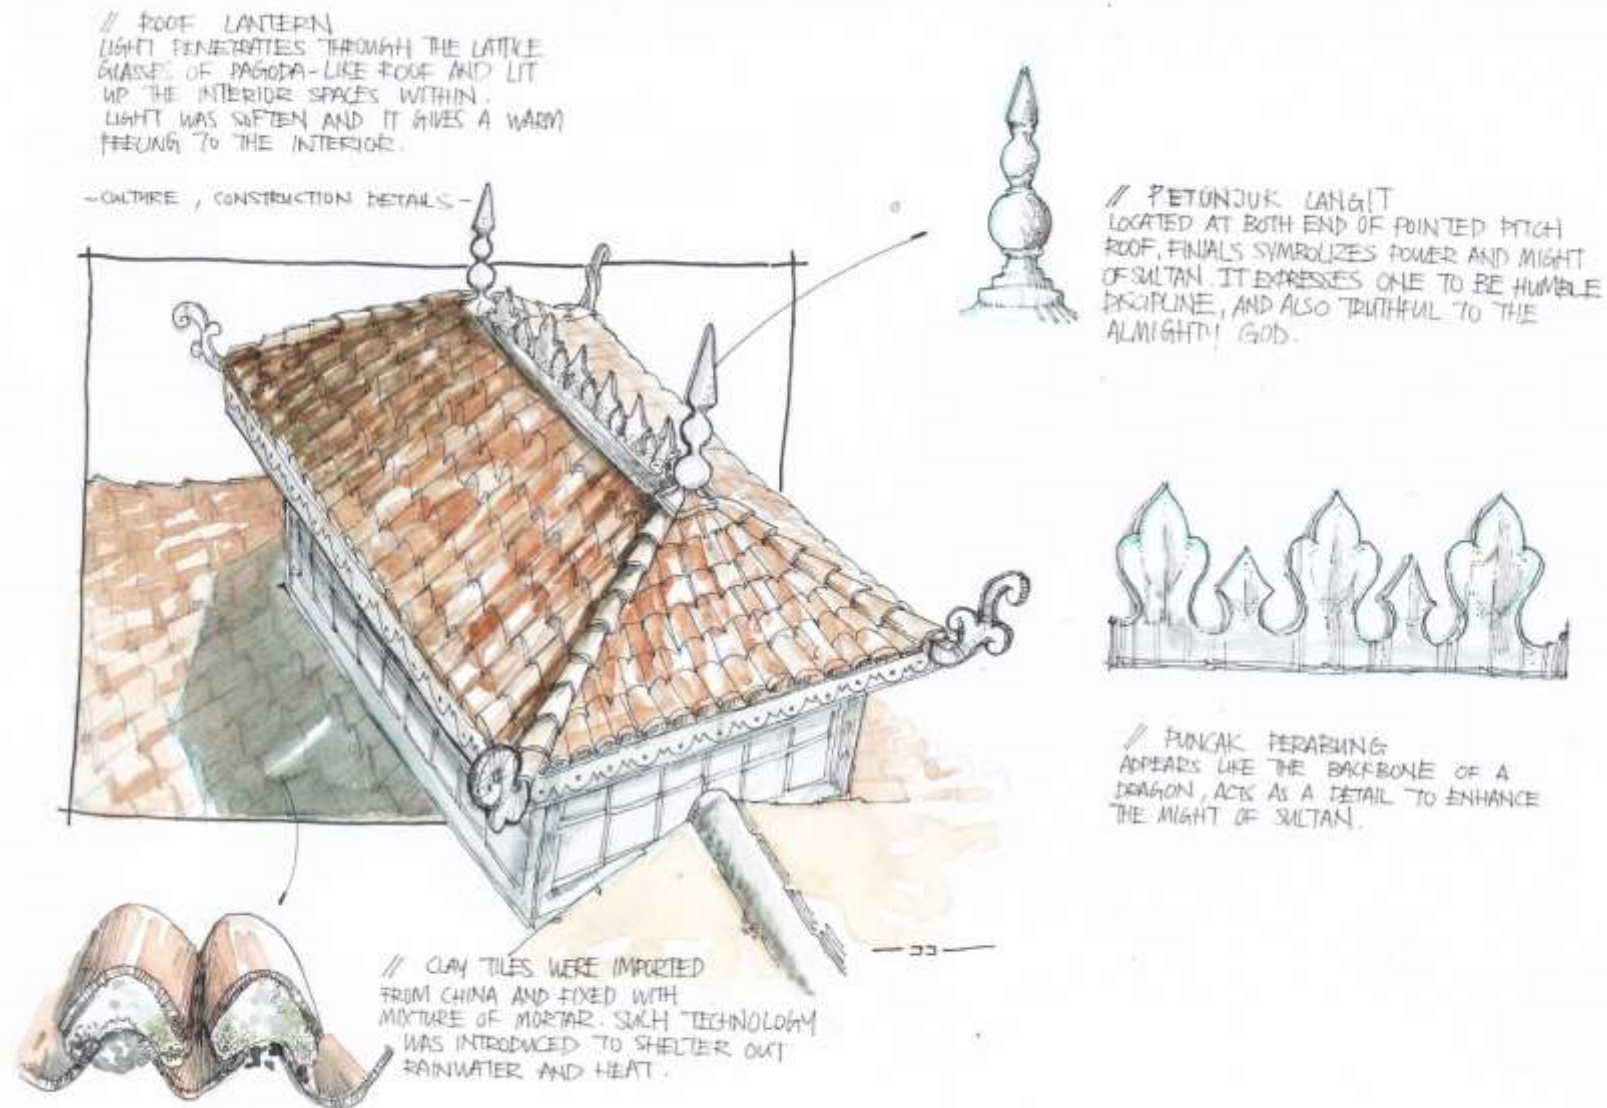 // ROOF LANTERN
LIGHT PENETRATES THROUGH THE LATTICE
GLASSES OF PAGODA-LIKE ROOF AND LIT
UP THE INTERIOR SPACES WITHIN.
LIGHT WAS SOFTEN AND IT GIVES A WARM
FEELING TO THE INTERIOR.
- CULTURE, CONSTRUCTION DETAILS -
// PETUNJUK LANGIT
LOCATED AT BOTH END OF POINTED PITCH
ROOF, FINIALS SYMBOLIZES POWER AND MIGHT
OF SULTAN. IT EXPRESSES ONE TO BE HUMBLE
DISCIPLINE, AND ALSO TRUTHFUL TO THE
ALMIGHTY GOD.
// PUNCAK PERABUNG
APPEARS LIKE THE BACKBONE OF A
DRAGON, ACTS AS A DETAIL TO ENHANCE
THE MIGHT OF SULTAN.
// CLAY TILES WERE IMPORTED
FROM CHINA AND FIXED WITH
MIXTURE OF MORTAR. SUCH TECHNOLOGY
WAS INTRODUCED TO SHELTER OUT
RAINWATER AND HEAT.